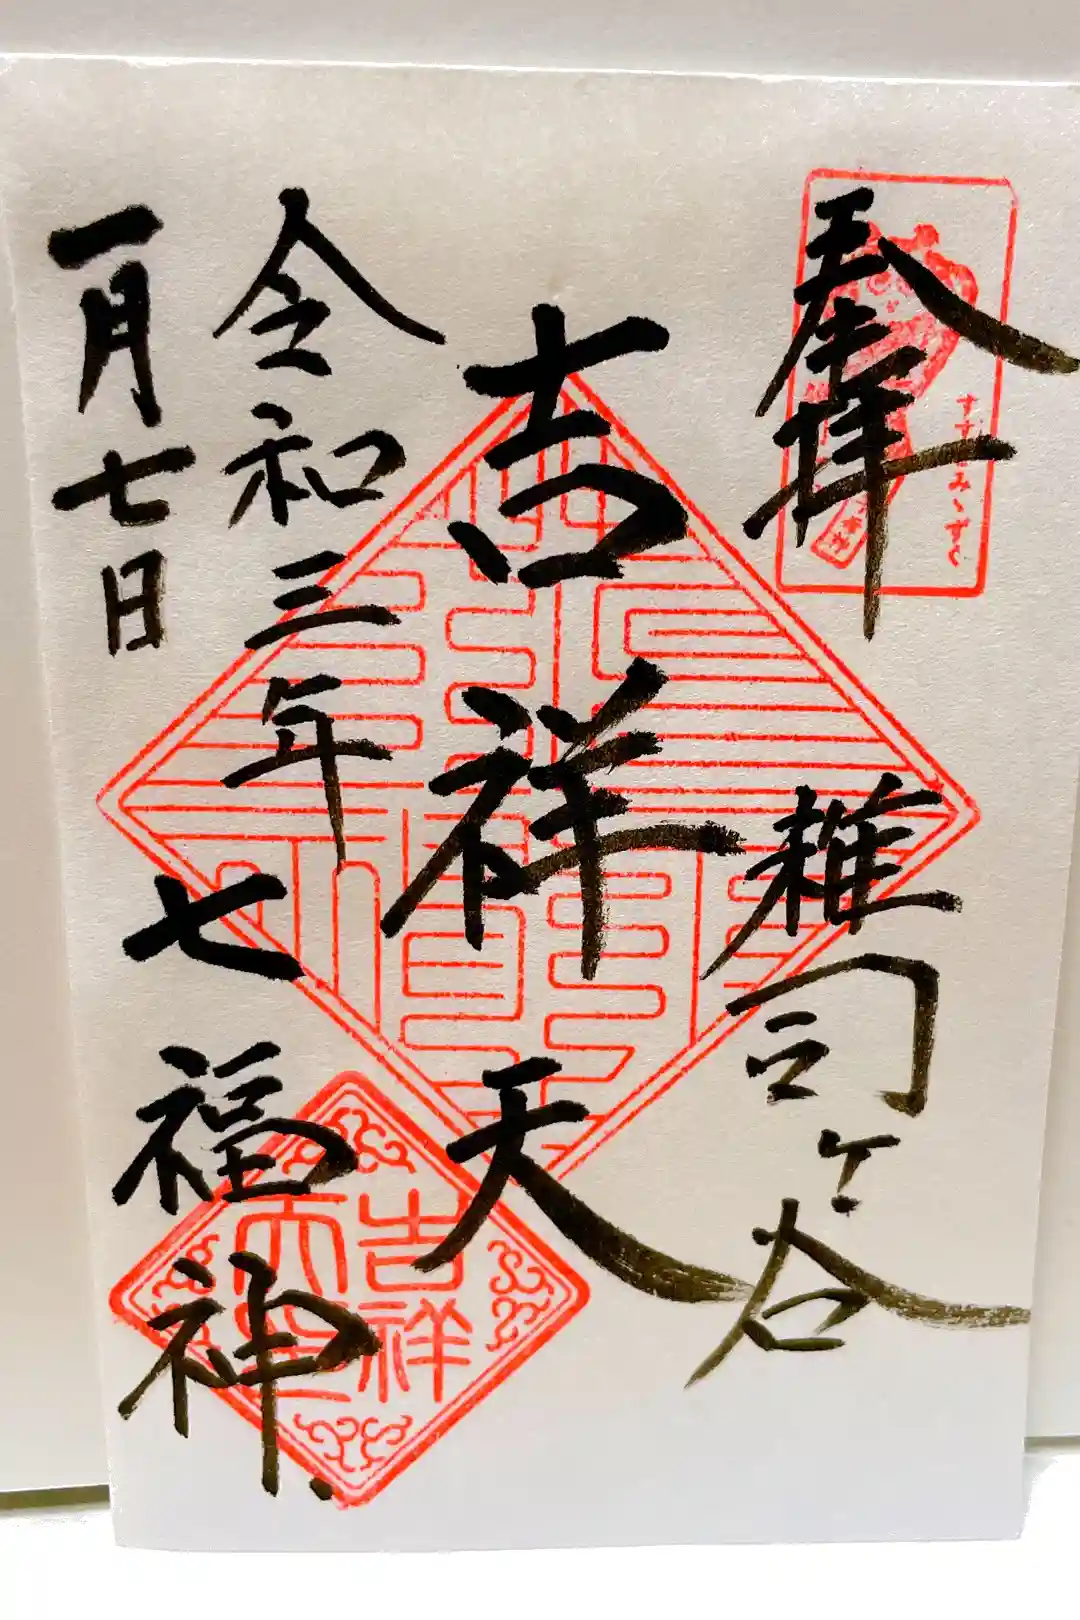 奉拝
雑司ヶ谷
吉祥天
令和三年
一月七日
七福神
すすきみゝずく
吉祥
天